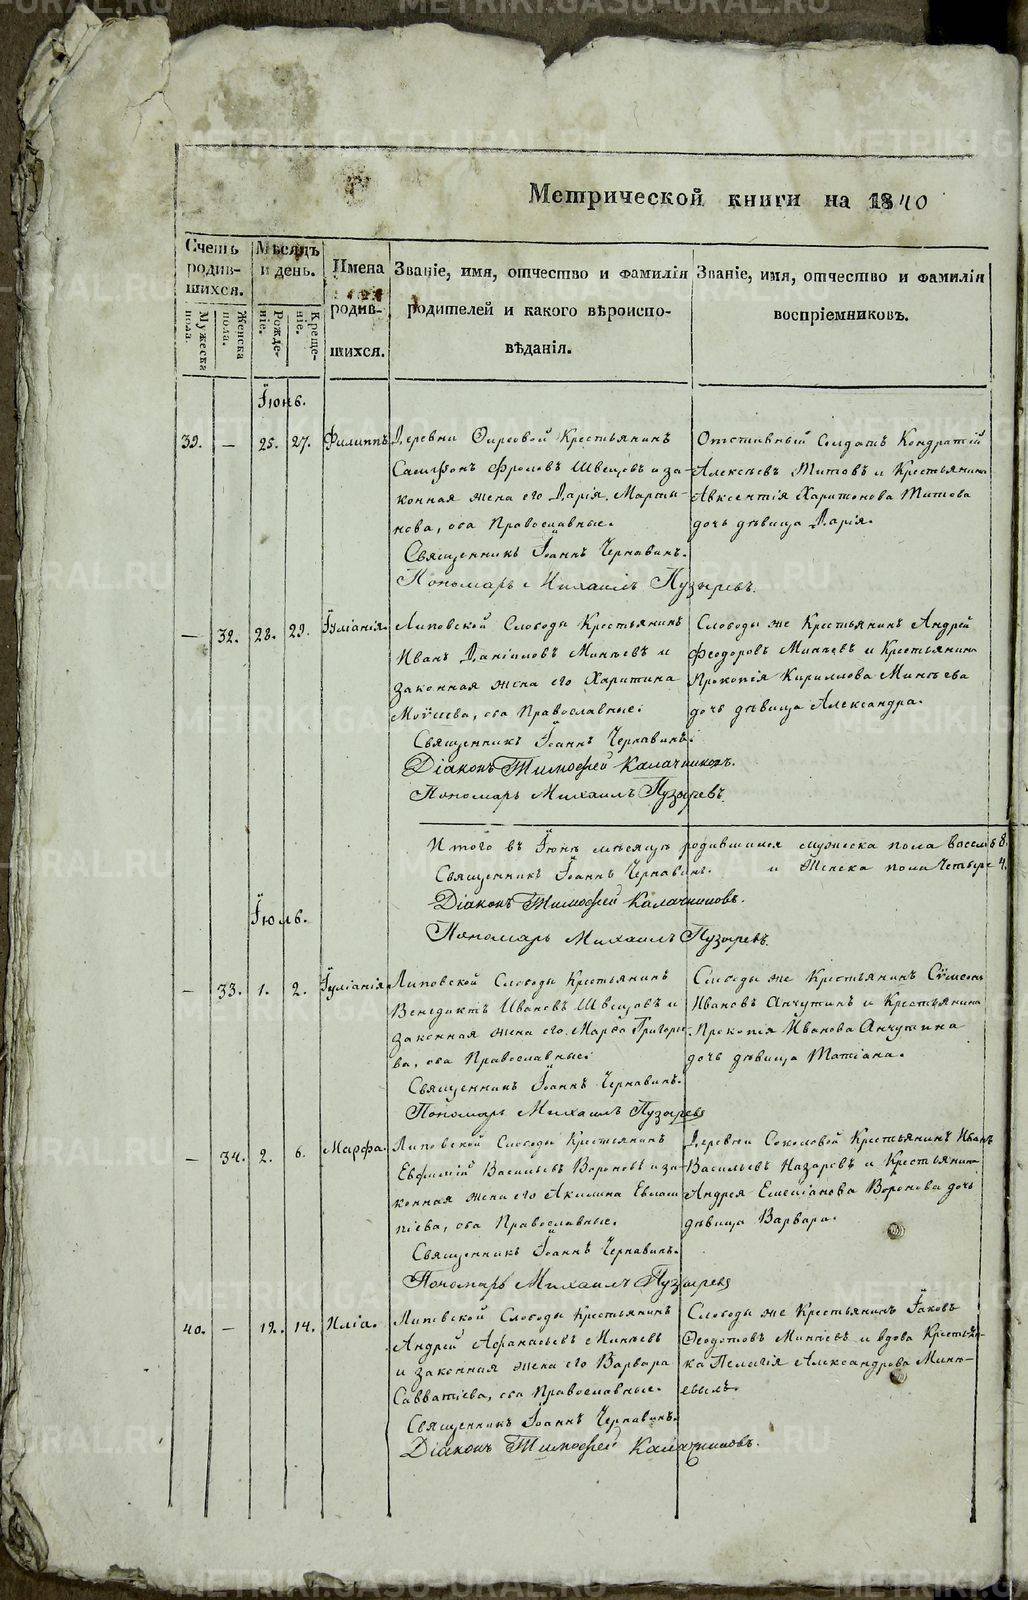 Метрической книги на 1840
Счетъ родив-шихся.
Мужеска пола.
Женска пола.
Мѣсяцъ и день.
Рожде-ніе.
Креще-ніе.
Имена родив-шихся.
Званіе, имя, отчество и фамилія
родителей и какого вѣроиспо-
вѣданія.
Званіе, имя, отчество и фамилія
воспріемниковъ.
Іюнь.
39. — 25. 27. Филиппъ.
Деревни Фирсовой Крестьянинъ
Сампсонъ Фроловъ Швецовъ и за-
конная жена его Дарія Марты-
нова, оба Православные.
Священникъ Іоаннъ Чернавинъ.
Пономарь Михаилъ Пузыревъ.
Отставный Солдатъ Кондратій
Алексѣевъ Титовъ и Крестьянина
Авксентія Харитонова Титова
дочь дѣвица Дарія.
— 32. 28. 29. Іуліанія.
Липовской Слободы Крестьянинъ
Иванъ Даніиловъ Минѣевъ и
законная жена его Харитина
Моѵсеева, оба Православные.
Священникъ Іоаннъ Чернавинъ.
Діаконъ Тимофей Калачниковъ.
Пономарь Михаилъ Пузыревъ.
Слободы же Крестьянинъ Андрей
Феодоровъ Минѣевъ и Крестьянина
Прокопія Кириллова Минѣева
дочь дѣвица Александра.
Итого въ Іюнѣ мѣсяцѣ родившихся мужеска пола восемь 8.
и Женска пола Четыре 4.
Священникъ Іоаннъ Чернавинъ.
Діаконъ Тимофей Калачниковъ.
Пономарь Михаилъ Пузыревъ.
Іюль.
— 33. 1. 2. Іуліанія.
Липовской Слободы Крестьянинъ
Венедиктъ Ивановъ Швецовъ и
законная жена его Марѳа Григорье-
ва, оба Православные.
Священникъ Іоаннъ Чернавинъ.
Пономарь Михаилъ Пузыревъ
Слободы же Крестьянинъ Сѵмеонъ
Ивановъ Анчутинъ и Крестьянина
Прокопія Иванова Анчутина
дочь дѣвица Татіана.
— 34. 2. 6. Марфа.
Липовской Слободы Крестьянинъ
Евфимій Васильевъ Вороновъ и за-
конная жена его Акилина Евлам-
піева, оба Православные.
Священникъ Іоаннъ Чернавинъ.
Пономарь Михаилъ Пузыревъ
Деревни Соколовой Крестьянинъ Иванъ
Васильевъ Назаровъ и Крестьянина
Андрея Емеліанова Воронова дочь
дѣвица Варвара.
40. — 12. 14. Иліа.
Липовской Слободы Крестьянинъ
Андрей Афанасьевъ Минѣевъ
и законная жена его Варвара
Савватіева, оба Православные.
Священникъ Іоаннъ Чернавинъ.
Діаконъ Тимофей Калачниковъ.
Слободы же Крестьянинъ Іаковъ
Ѳеодотовъ Минѣевъ и вдова Крестьян-
ка Пелагія Александрова Минѣ-
евыхъ.
METRIKI.GASO-URAL.RU